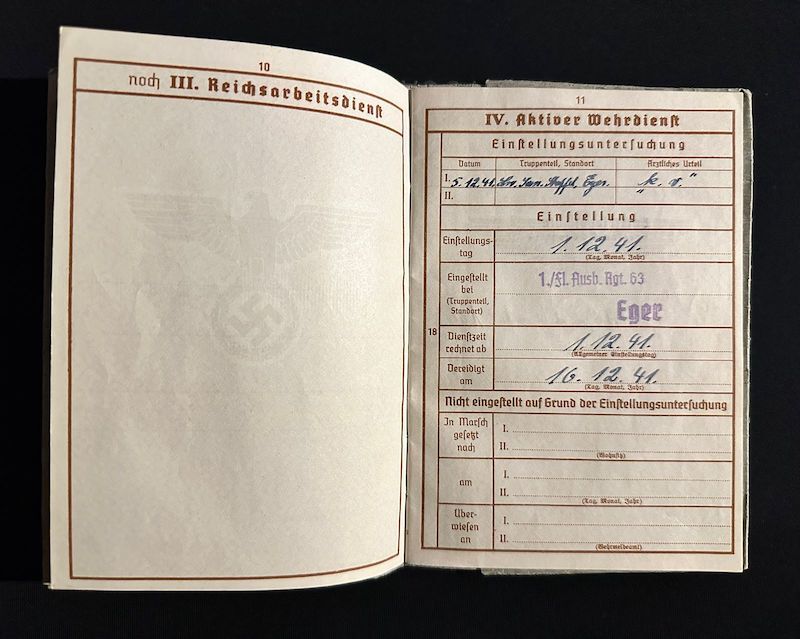 10
noch III. Reichsarbeitsdienst
11
IV. Aktiver Wehrdienst
Einstellungsuntersuchung
Datum Truppenteil, Standort Ärztliches Urteil
I. 5.12.41. San. Staffel Eger. „k. v."
II.
Einstellung
Einstellungs-
tag
1.12.41.
(Tag, Monat, Jahr)
Eingestellt
bei
(Truppenteil,
Standort)
1./Fl. Ausb. Rgt. 63
Eger
18
Dienstzeit
rechnet ab
1.12.41.
(Allgemeiner Einstellungstag)
Vereidigt
am
16.12.41.
(Tag, Monat, Jahr)
Nicht eingestellt auf Grund der Einstellungsuntersuchung
In Marsch
gesetzt
nach
I.
II.
(Wohnsitz)
am
I.
II.
(Tag, Monat, Jahr)
Über-
wiesen
an
I.
II.
(Wehrmeldeamt)